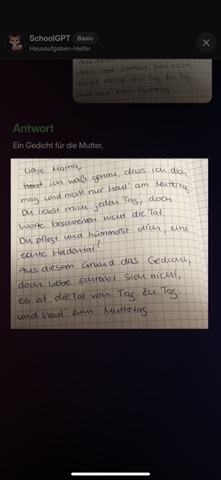 SchoolGPT Basic
Hausaufgaben-Helfer
doch Liebe schreibt sich nicht,
es ist die Tat von Tag zu Tag
und heut' zum Muttertag
Antwort
Ein Gedicht für die Mutter.
Liebe Mama,
heut ich weiß genau, dass ich dich
mag und nicht nur heut' am Muttertag
Du liebst mich jeden Tag, doch
Worte beschreiben nicht die Tat.
Du pflegst und kümmerst dich, eine
echte Heldentat!
Aus diesem Grund das Gedicht,
doch Liebe schreibt sich nicht,
es ist die Tat von Tag zu Tag
und heut' zum Muttertag